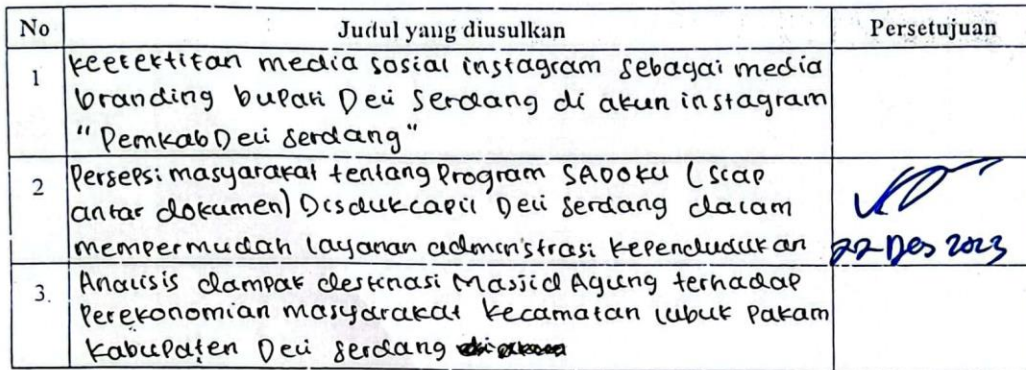 No Judul yang diusulkan Persetujuan
1 keefektifan media sosial instagram sebagai media
branding bupati Deli Serdang di akun instagram
"Pemkab Deli Serdang"
2 Persepsi masyarakat tentang Program SADOKU (Siap
antar dokumen) Disdukcapil Deli Serdang dalam
mempermudah layanan administrasi kependudukan
22-Des 2023
3. Analisis dampak destinasi Masjid Agung terhadap
Perekonomian masyarakat kecamatan lubuk Pakam
Kabupaten Deli Serdang